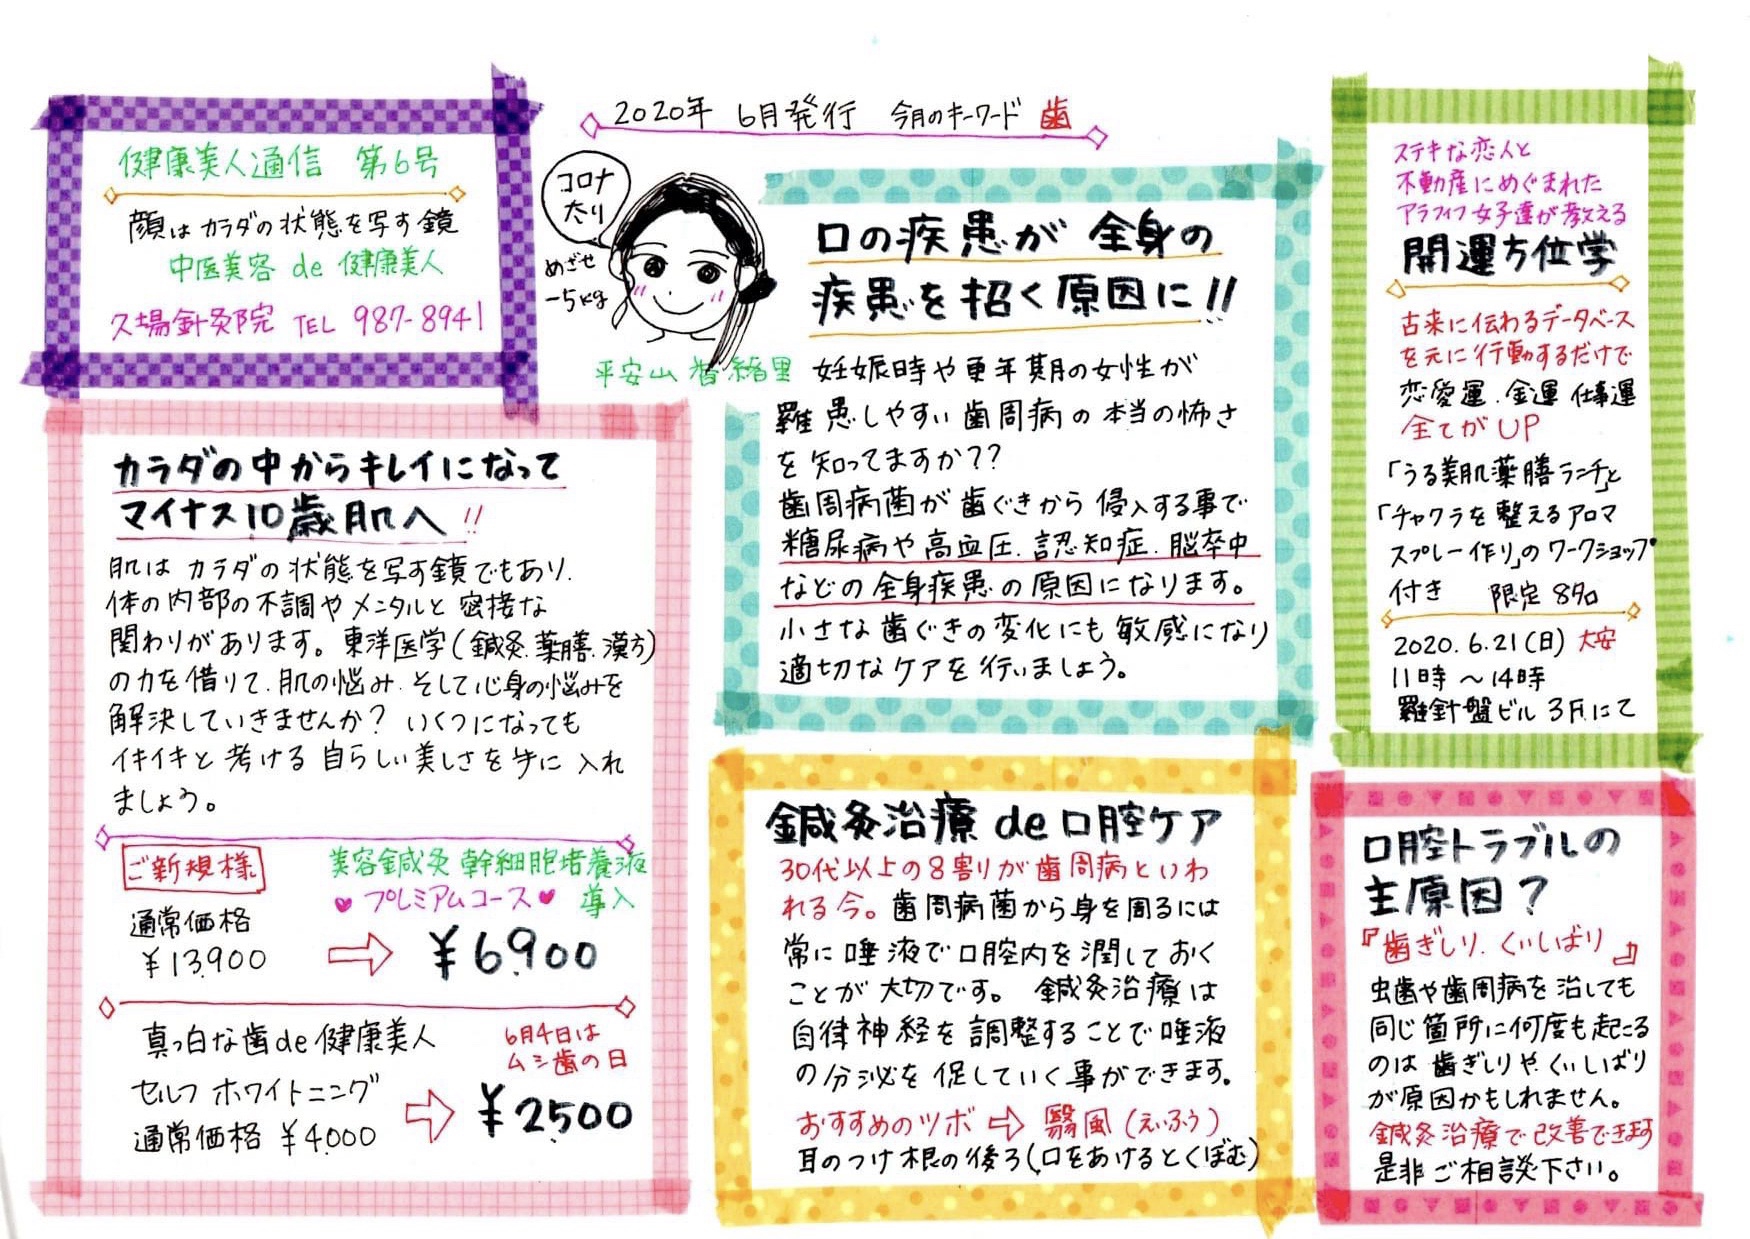 2020年 6月発行 今月のキーワード 歯
健康美人通信 第6号
顔はカラダの状態を写す鏡
中医美容 de 健康美人
久場針灸院 TEL 987-8941
コロナ
太り
めざせ
-5kg
平安山 智緒里
カラダの中からキレイになって
マイナス10歳肌へ!!
肌はカラダの状態を写す鏡でもあり、
体の内部の不調やメンタルと密接な
関わりがあります。東洋医学(鍼灸.薬膳.漢方)
の力を借りて、肌の悩み、そして心身の悩みを
解決していきませんか? いくつになっても
イキイキと 自らしい美しさを手に入れ
ましょう。
ご新規様
美容鍼灸 幹細胞培養液
♥プレミアムコース♥ 導入
通常価格
¥13,900 ⇨ ¥6,900
真っ白な歯de健康美人
6月4日は
ムシ歯の日
セルフホワイトニング
通常価格 ¥4,000 ⇨ ¥2,500
口の疾患が全身の
疾患を招く原因に!!
妊娠時や更年期の女性が
羅患しやすい歯周病の本当の怖さ
を知ってますか??
歯周病菌が歯ぐきから侵入する事で
糖尿病や高血圧.認知症.脳卒中
などの全身疾患の原因になります。
小さな歯ぐきの変化にも敏感になり
適切なケアを行いましょう。
鍼灸治療de口腔ケア
30代以上の8割りが歯周病といわ
れる今。歯周病菌から身を周るには
常に唾液で口腔内を潤しておく
ことが大切です。 鍼灸治療は
自律神経を調整することで唾液
の分泌を促していく事ができます。
おすすめのツボ⇨翳風(えいふう)
耳のつけ根の後ろ(口をあけるとくぼむ)
ステキな恋人と
不動産にめぐまれた
アラフィフ女子達が教える
開運方位学
古来に伝わるデータベース
を元に行動するだけで
恋愛運.金運 仕事運
全てがUP
「うる美肌薬膳ランチ」と
「チャクラを整えるアロマ
スプレー作り」のワークショップ
付き 限定8名
2020.6.21(日)大安
11時～14時
羅針盤ビル3Fにて
口腔トラブルの
主原因?
『歯ぎしり.くいしばり』
虫歯や歯周病を治しても
同じ箇所に何度も起こる
のは歯ぎしりやくいしばり
が原因かもしれません。
鍼灸治療で改善できます
是非ご相談下さい。